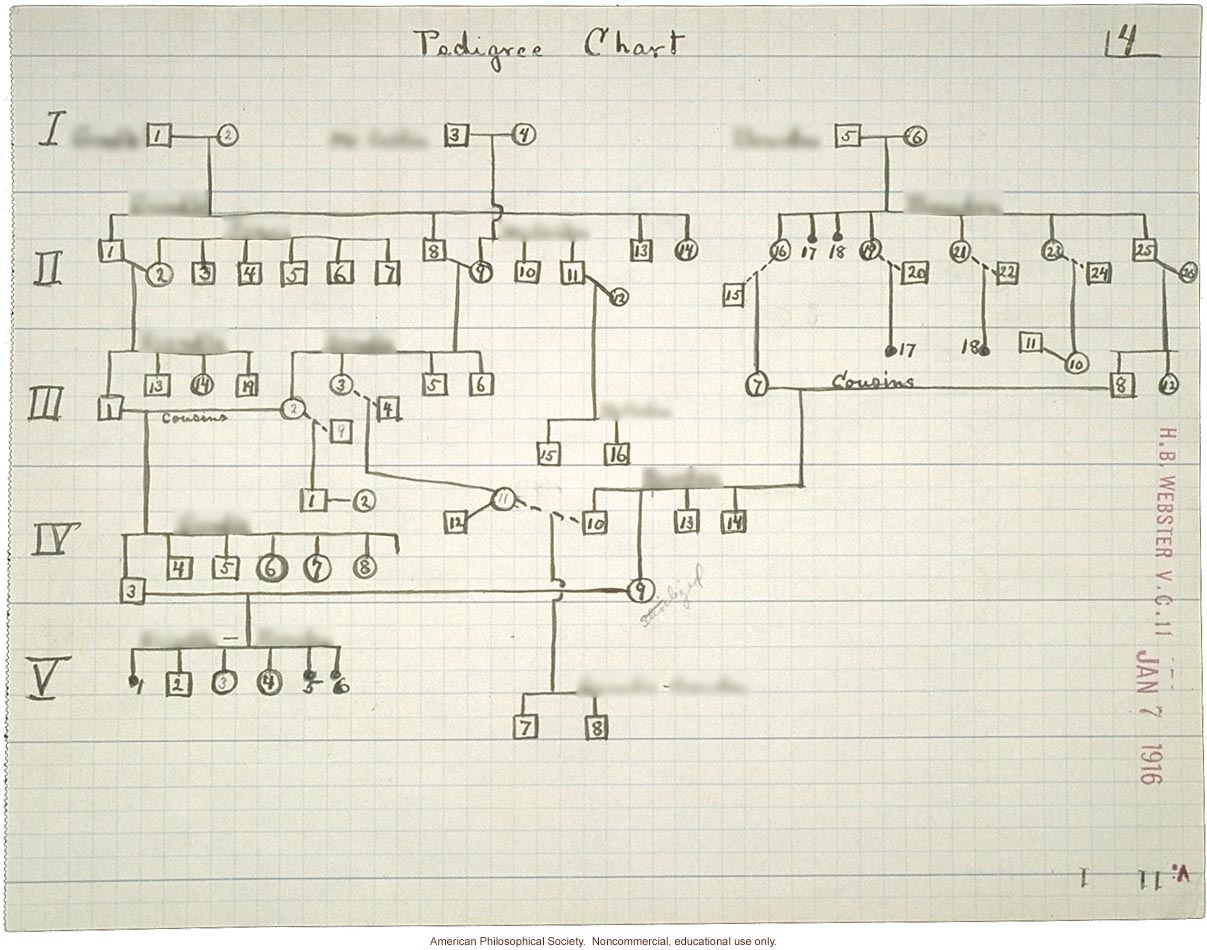 Pedigree Chart
14
I 1 2 3 4 5 6
1 8 13 14 16 17 18 19 21 23 25
II 2 3 4 5 6 7 9 10 11 20 22 24 26
12 15
13 14 19 3 5 6 17 18 11 10
III 1 cousins 2 4 7 Cousins 8 12
9
15 16
1 2 11
12 10 13 14
IV 4 5 6 7 8
3 9
sterilized
V 1 2 3 4 5 6
7 8
H.B. WEBSTER V.C.11
JAN 7 1916
V. 11 1
American Philosophical Society. Noncommercial, educational use only.